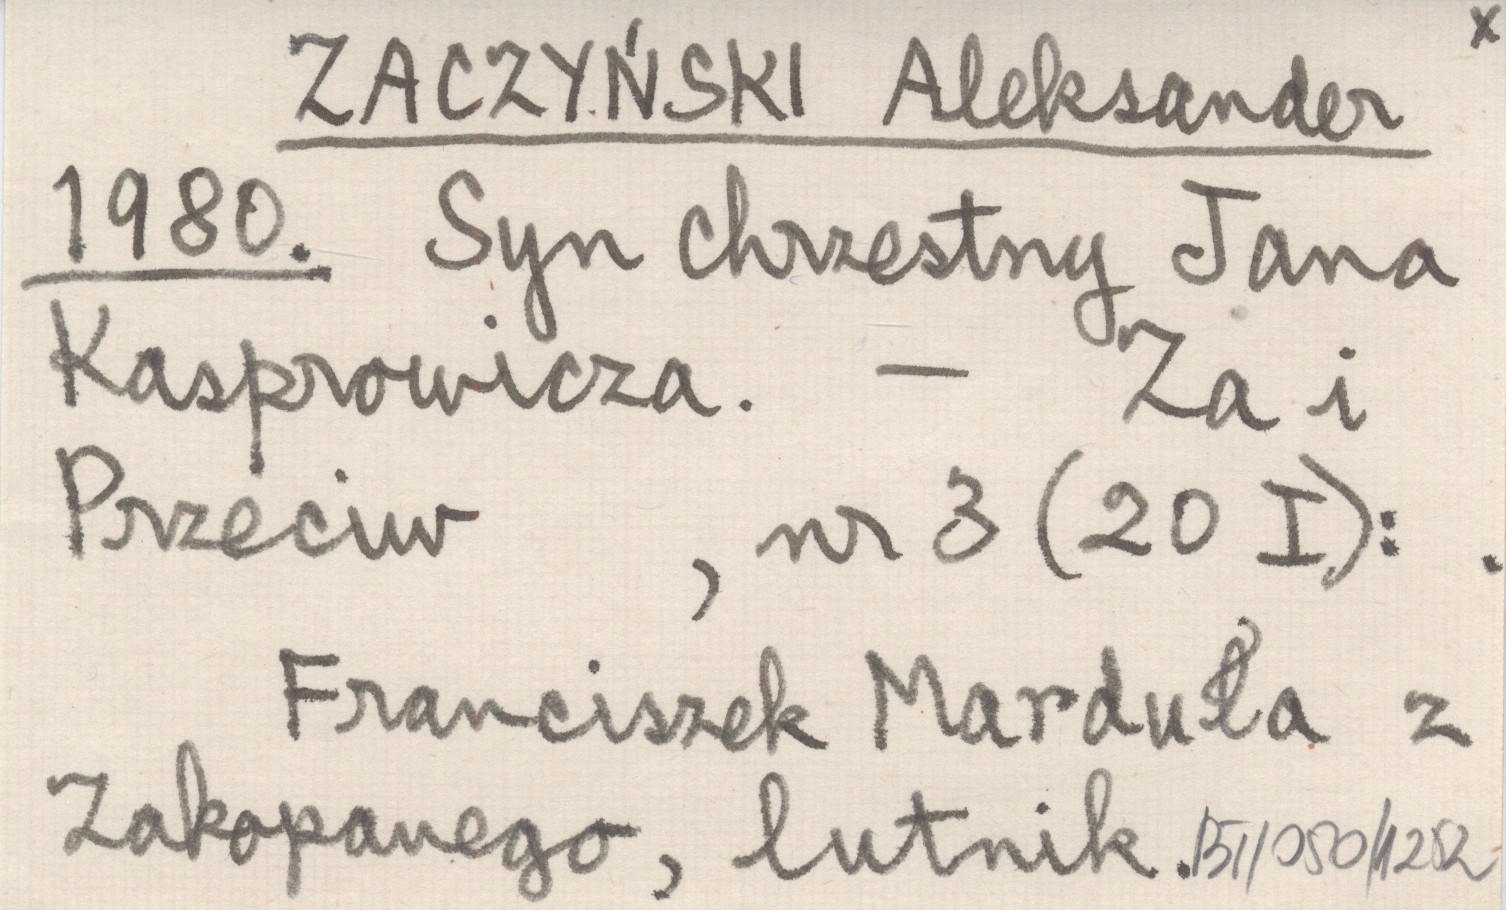 x
ZACZYŃSKI Aleksander
1980. Syn chrzestny Jana
Kasprowicza. — Za i
Przeciw , nr 3 (20 I): .
Franciszek Marduła z
Zakopanego, lutnik.